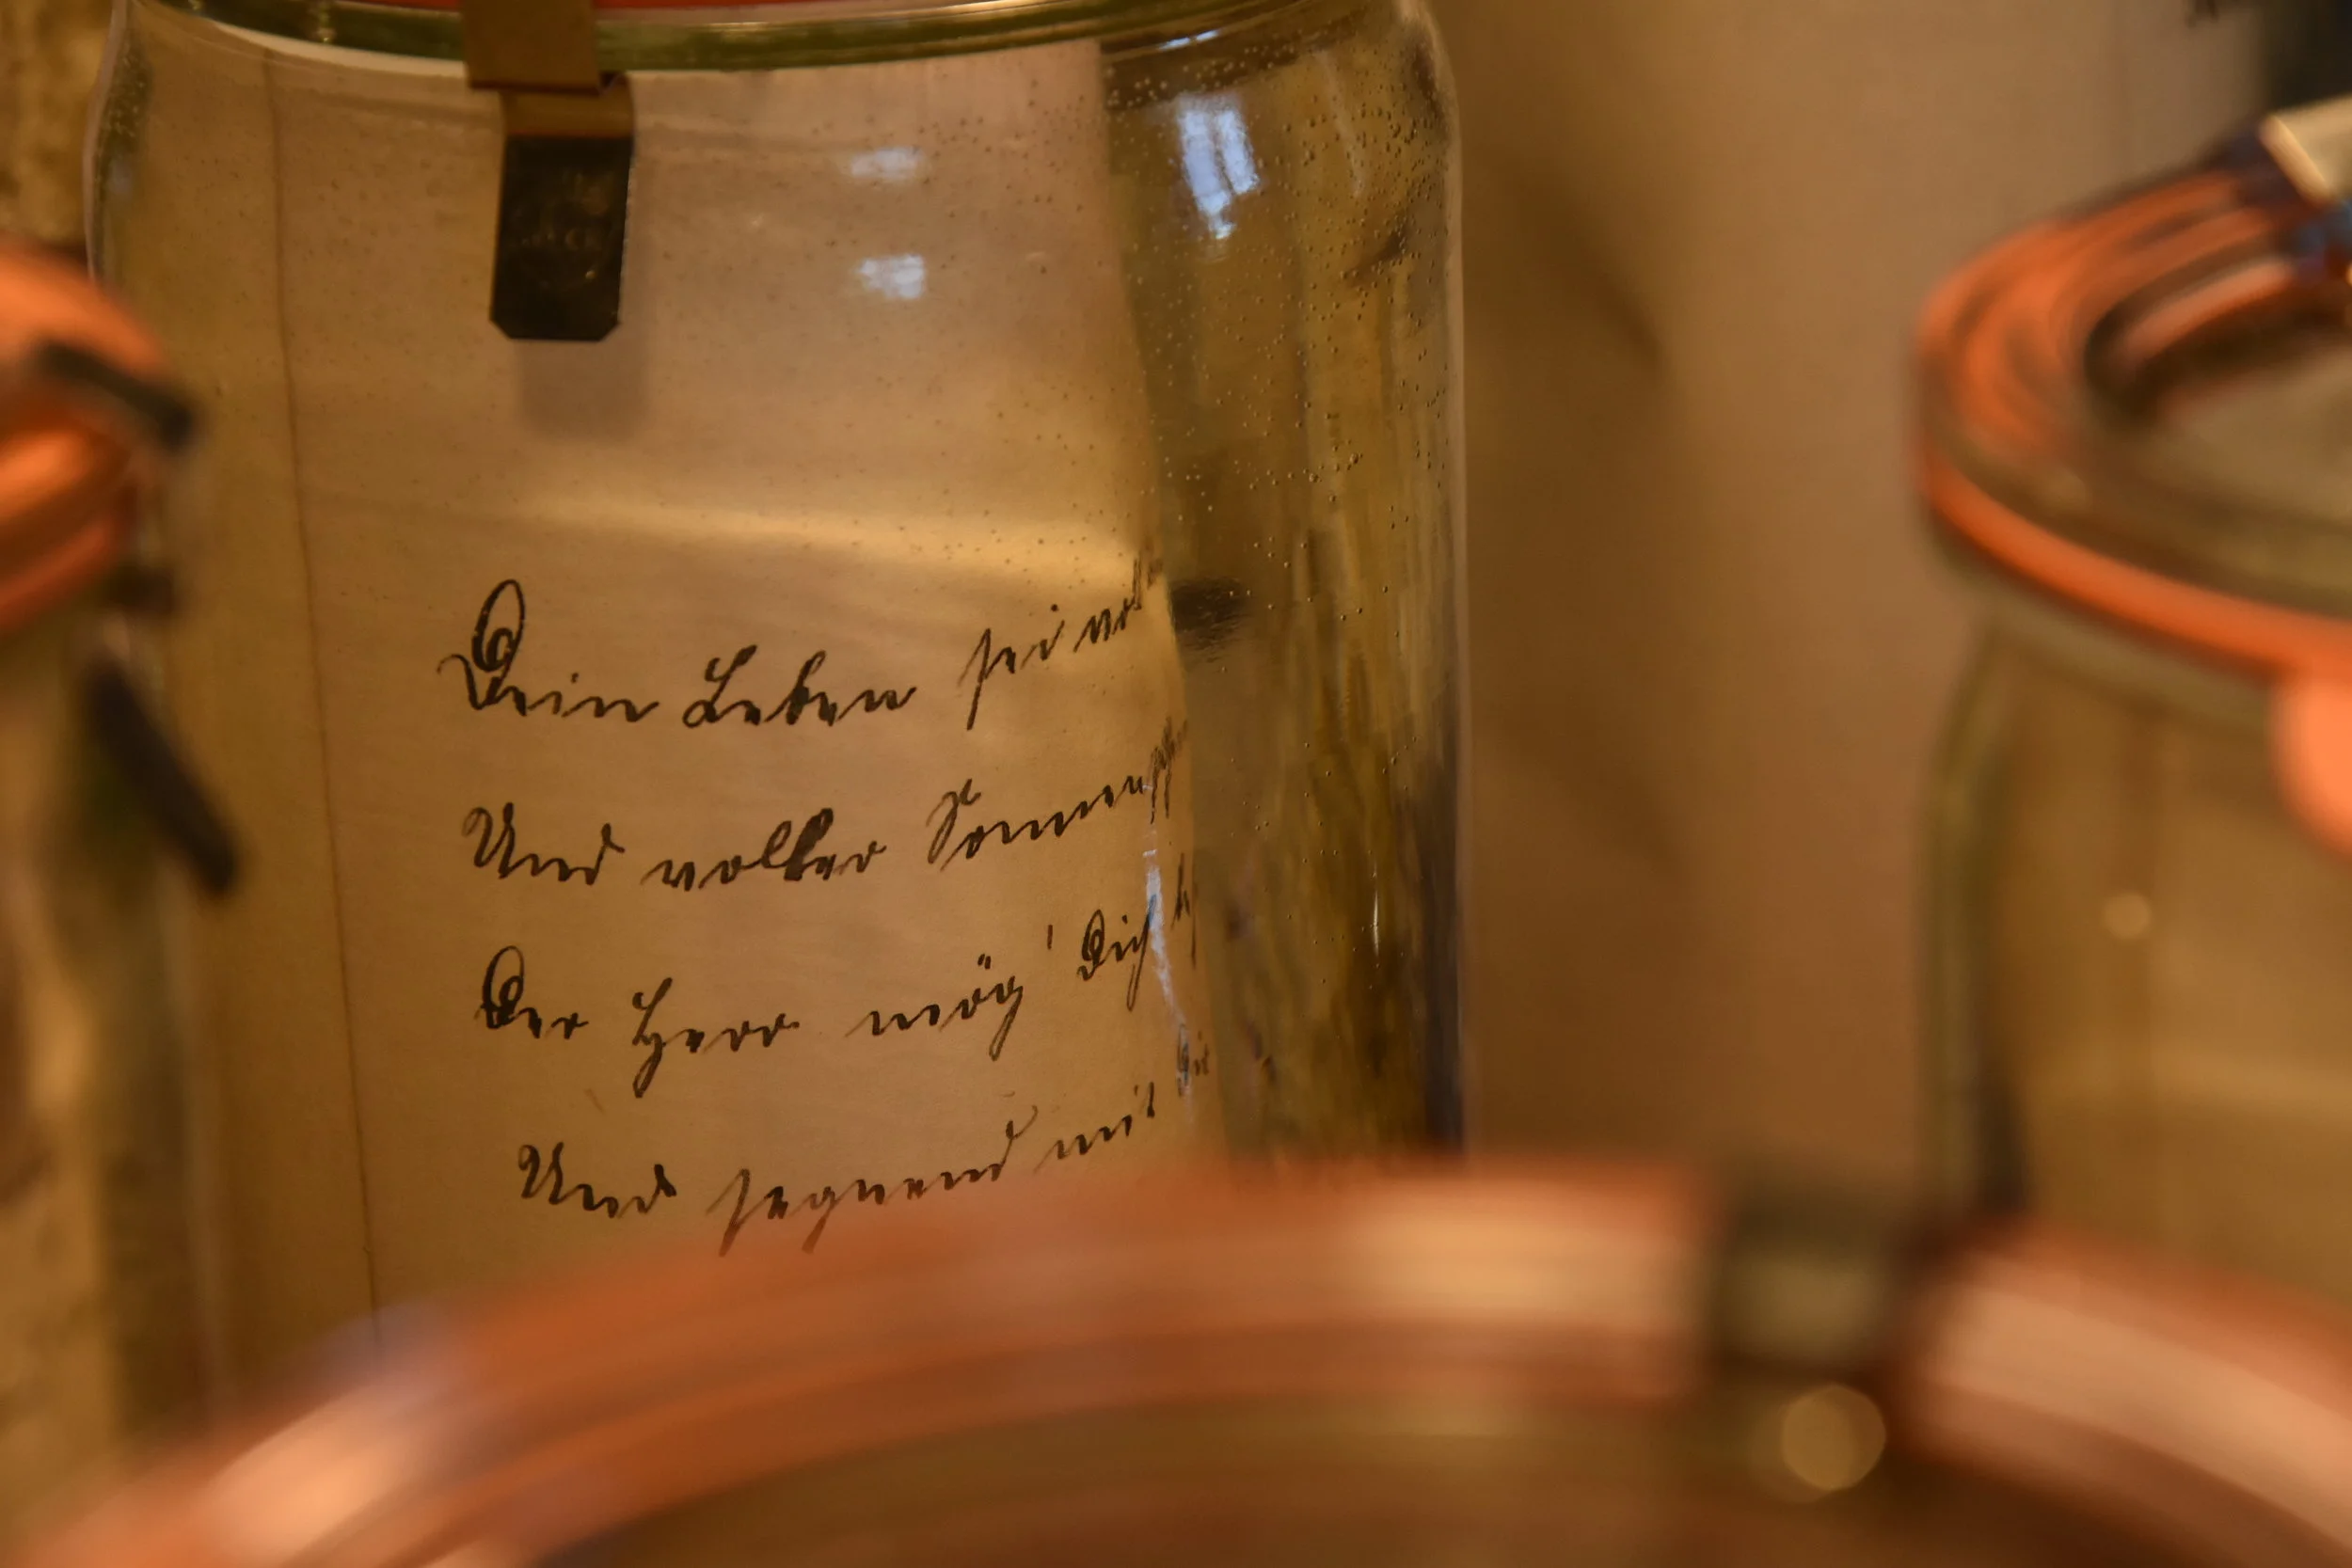 Dein Leben sei
Und voller
Der Herr mög' Dich
Und segnend mit